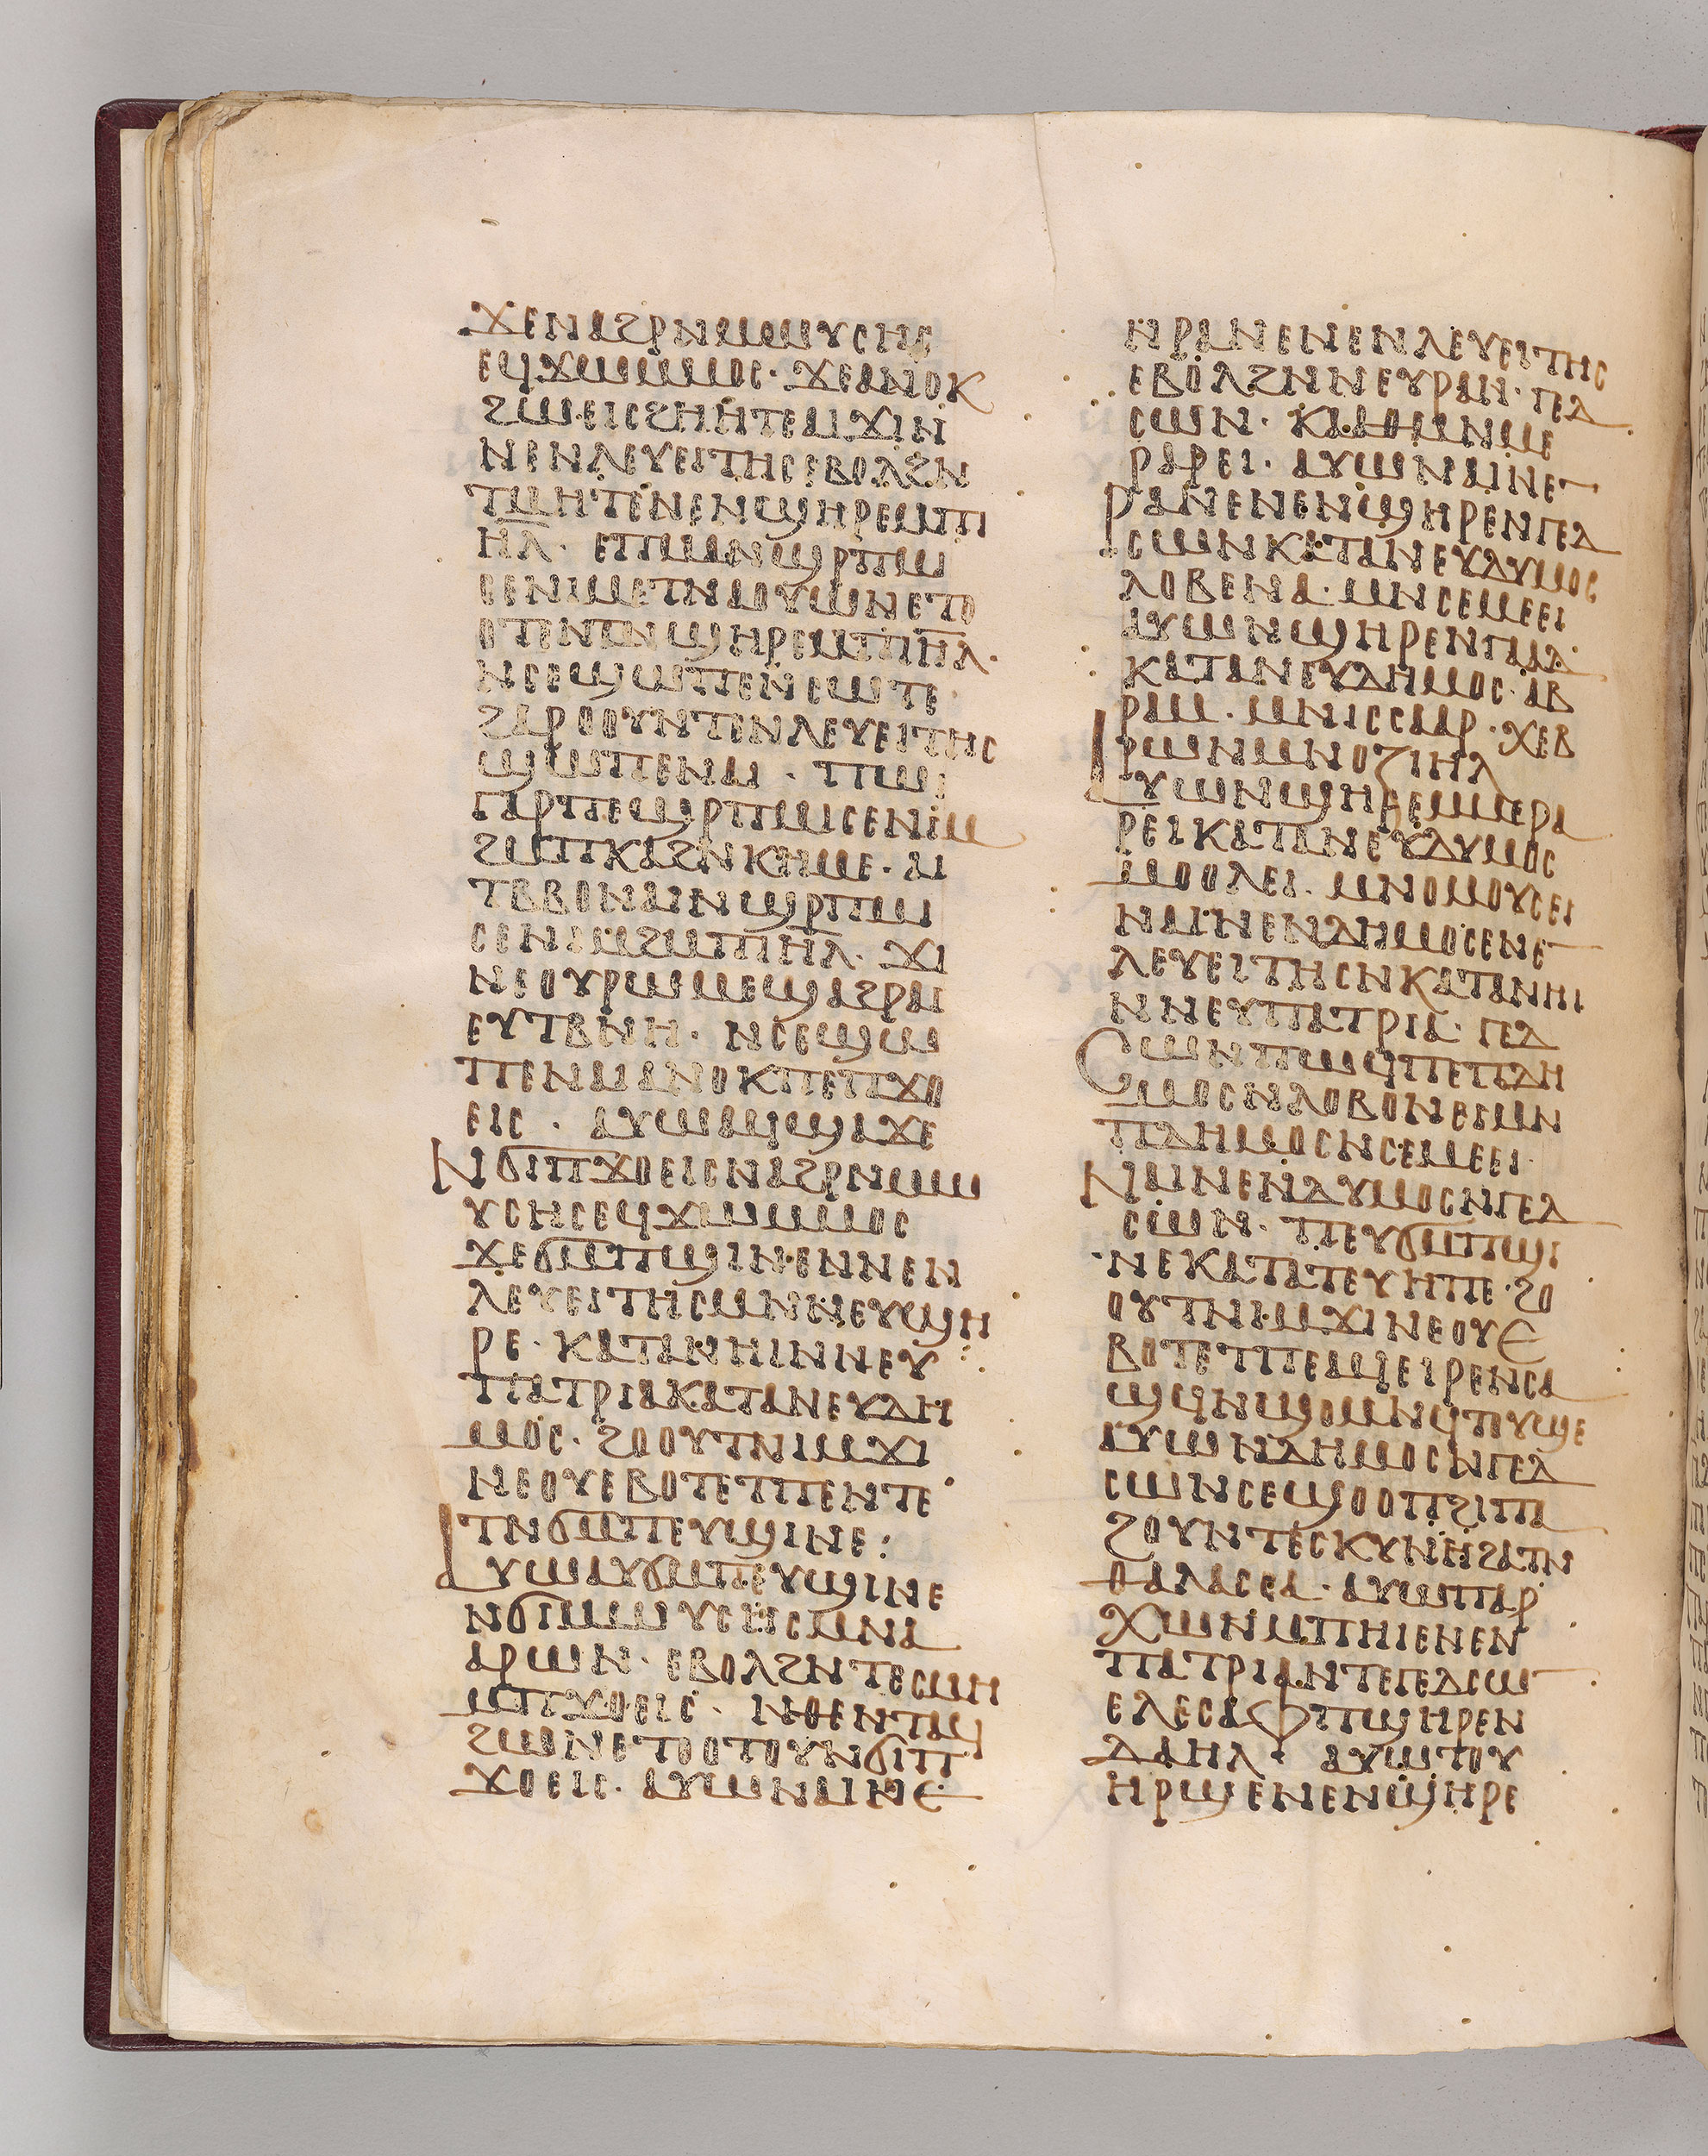 ϪⲈⲚⲀϨⲢⲚⲘⲘⲰⲨⲤⲎⲤ
ⲈϤϪⲰⲘⲘⲞⲤ· ϪⲈⲀⲚⲞⲔ
ϨⲰ·ⲈⲒⲤϨⲎⲎⲦⲈⲀⲒϪⲒⲚ
ⲚⲈⲚⲖⲈⲨⲈⲒⲦⲎⲤⲈⲂⲞⲖϨⲚ
ⲦⲘⲎⲦⲈⲚⲈⲚϢⲎⲢⲈⲘⲠⲒ
ⲎⲖ· ⲈⲠⲘⲀⲚϢⲢⲠⲘⲒ
ⲤⲈⲚⲒⲘⲈⲦⲚⲀⲞⲨⲰⲚⲈⲦⲞ
ⲞⲦⲈⲚⲦⲚϢⲎⲢⲈⲘⲠⲒⲎⲖ·
ⲚⲤⲈϢⲰⲠⲈⲚⲤⲰⲦⲈ
ϨⲀⲢⲞⲞⲨⲚⲦⲈⲚⲖⲈⲨⲈⲒⲦⲎⲤ
ϢⲰⲠⲈⲚⲀⲒ · ⲠⲰⲒ
ⲄⲀⲢⲠⲈϢⲢⲠⲘⲒⲤⲈⲚⲒⲘ
ϨⲘⲠⲔⲀϨⲚⲔⲎⲘⲈ· ⲀⲒ
ⲦⲂⲂⲞⲚⲀⲒⲚϢⲢⲠⲘⲒ
ⲤⲈⲚⲒⲘϨⲘⲠⲒⲎⲖ· ϪⲒ
ⲚⲈⲞⲨⲢⲰⲘⲈϢⲀϨⲢⲀⲒ
ⲈⲨⲦⲂⲚⲎ· ⲚⲤⲈϢⲰ
ⲠⲈⲚⲀⲒⲀⲚⲞⲔⲠⲈⲠϪⲞ
ⲈⲒⲤ · ⲀⲨⲰⲀϤϢⲀϪⲈ
ⲚϬⲒⲠϪⲞⲈⲒⲤⲚⲀϨⲢⲚⲘⲰ
ⲨⲤⲎⲤⲈϤϪⲰⲘⲘⲞⲤ
ϪⲈϬⲘⲠϢⲒⲚⲈⲚⲚⲈⲚ
ⲖⲈⲨⲈⲒⲦⲎⲤⲘⲚⲚⲈⲨϢⲎ
ⲢⲈ· ⲔⲀⲦⲀⲚⲎⲒⲚⲚⲈⲨ
ⲠⲀⲦⲢⲒⲀⲔⲀⲦⲀⲚⲈⲨⲆⲎ
ⲘⲞⲤ· ϨⲞⲞⲨⲦⲚⲒⲘϪⲒ
ⲚⲈⲞⲨⲈⲂⲞⲦⲈⲦⲠⲈⲚⲦⲈ
ⲦⲚϬⲘⲠⲈⲨϢⲒⲚⲈ:
ⲀⲨⲰⲀⲨϬⲘⲠⲈⲨϢⲒⲚⲈ
ⲚϬⲒⲘⲰⲨⲤⲎⲤⲘⲚⲀ
ⲀⲢⲰⲚ· ⲈⲂⲞⲖϨⲚⲦⲈⲤⲘⲎ
ⲘⲠϪⲞⲈⲒⲤ· ⲚⲐⲈⲚⲦⲀϤ
ϨⲰⲚⲈⲦⲞⲞⲦⲞⲨⲚϬⲒⲠ
ϪⲞⲈⲒⲤ· ⲀⲨⲰⲚⲀⲒⲚⲈ
ⲚⲢⲀⲚⲈⲚⲈⲚⲖⲈⲨⲈⲒⲦⲎⲤ
ⲈⲂⲞⲖϨⲚⲚⲈⲨⲢⲀⲚ· ⲄⲈⲆ
ⲤⲰⲚ· ⲔⲀⲀⲐⲘⲚⲘⲈ
ⲢⲀⲢⲈⲒ· ⲀⲨⲰⲚⲀⲒⲚⲈ
ⲢⲀⲚⲈⲚⲈⲚϢⲎⲢⲈⲚⲄⲈⲆ
ⲤⲰⲚⲔⲀⲦⲀⲚⲈⲨⲆⲨⲘⲞⲤ
ⲖⲞⲂⲈⲚⲀ· ⲘⲚⲤⲈⲘⲈⲈⲒ
ⲀⲨⲰⲚϢⲎⲢⲈⲚⲄⲀⲀⲆ
ⲔⲀⲦⲀⲚⲈⲨⲆⲎⲘⲞⲤ· ⲀⲂ
ⲢⲀⲘ· ⲘⲚⲒⲤⲤⲀⲀⲢ· ⲬⲈⲂ
ⲢⲰⲚⲘⲚⲞⲌⲒⲎⲖ
ⲀⲨⲰⲚϢⲎⲢⲈⲘⲘⲈⲢⲀ
ⲢⲈⲒⲔⲀⲦⲀⲚⲈⲨⲆⲨⲘⲞⲤ
ⲘⲞⲞⲖⲈⲒ· ⲘⲚⲞⲘⲞⲨⲤⲈⲒ
ⲚⲀⲒⲚⲈⲚⲆⲎⲘⲞⲤⲈⲚⲈ
ⲖⲈⲨⲈⲒⲦⲎⲤⲚⲔⲀⲦⲀⲚⲎⲒ
ⲚⲚⲈⲨⲠⲀⲦⲢⲒⲀ· ⲄⲈⲆ
ⲤⲰⲚⲠⲰϤⲠⲈⲠⲆⲎ
ⲘⲞⲤⲚⲖⲞⲂⲞⲚⲈⲒⲘⲚ
ⲠⲆⲎⲘⲞⲤⲚⲤⲈⲘⲈⲈⲒ·
ⲚⲀⲒⲚⲈⲚⲆⲨⲘⲞⲤⲚⲄⲈⲆ
ⲤⲰⲚ· ⲠⲈⲨϬⲘⲠϢⲒ
ⲚⲈⲔⲀⲦⲀⲦⲈⲨⲎⲠⲈ· ϨⲞ
ⲞⲨⲦⲚⲒⲘϪⲒⲚⲈⲞⲨⲈ
ⲂⲞⲦⲈⲦⲠⲈⲀϤⲈⲒⲢⲈⲚⲤⲀ
ϢϤⲚϢⲞⲘⲚϤⲦⲞⲨϢⲈ
ⲀⲨⲰⲚⲆⲎⲘⲞⲤⲚⲄⲈⲆ
ⲤⲰⲚⲤⲈϢⲞⲞⲠϨⲒⲠⲀ
ϨⲞⲨⲚⲦⲈⲤⲔⲨⲚⲎϨⲀⲦⲚ
ⲐⲀⲖⲀⲤⲤⲀ· ⲀⲨⲰⲠⲀⲢ
ⲬⲰⲚⲘⲠⲎⲒⲈⲚⲈⲚ
ⲠⲀⲦⲢⲒⲀⲚⲦⲈⲄⲈⲆⲤⲰ
ⲈⲖⲈⲤⲀⲪⲠϢⲎⲢⲈⲚ
ⲆⲀⲎⲖ· ⲀⲨⲰⲦⲞⲨ
ⲎⲢϢⲈⲚⲈⲚϢⲎⲢⲈ